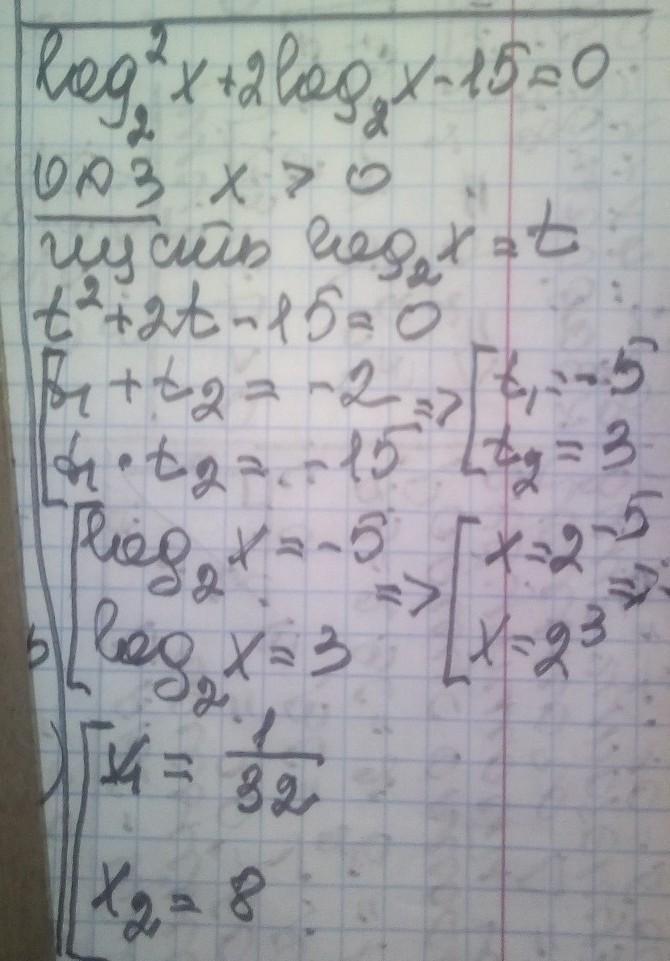 log₂²x+2log₂x-15=0
ОДЗ x > 0
пусть log₂x = t
t²+2t-15=0
[t₁+t₂=-2 => [t₁=-5
[t₁·t₂=-15 [t₂=3
[log₂x=-5 => [x=2⁻⁵ =>
[log₂x=3 [x=2³
[x₁=1/32
[x₂=8